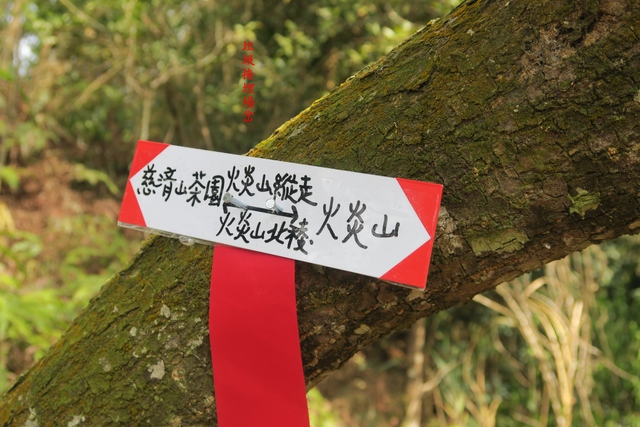 慈音山茶園
火炎山縱走
火炎山北稜
火炎山